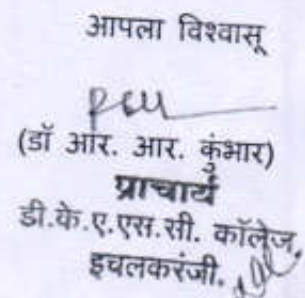 आपला विश्वासू
(डॉ आर. आर. कुंभार)
प्राचार्य
डी.के.ए.एस.सी. कॉलेज,
इचलकरंजी.